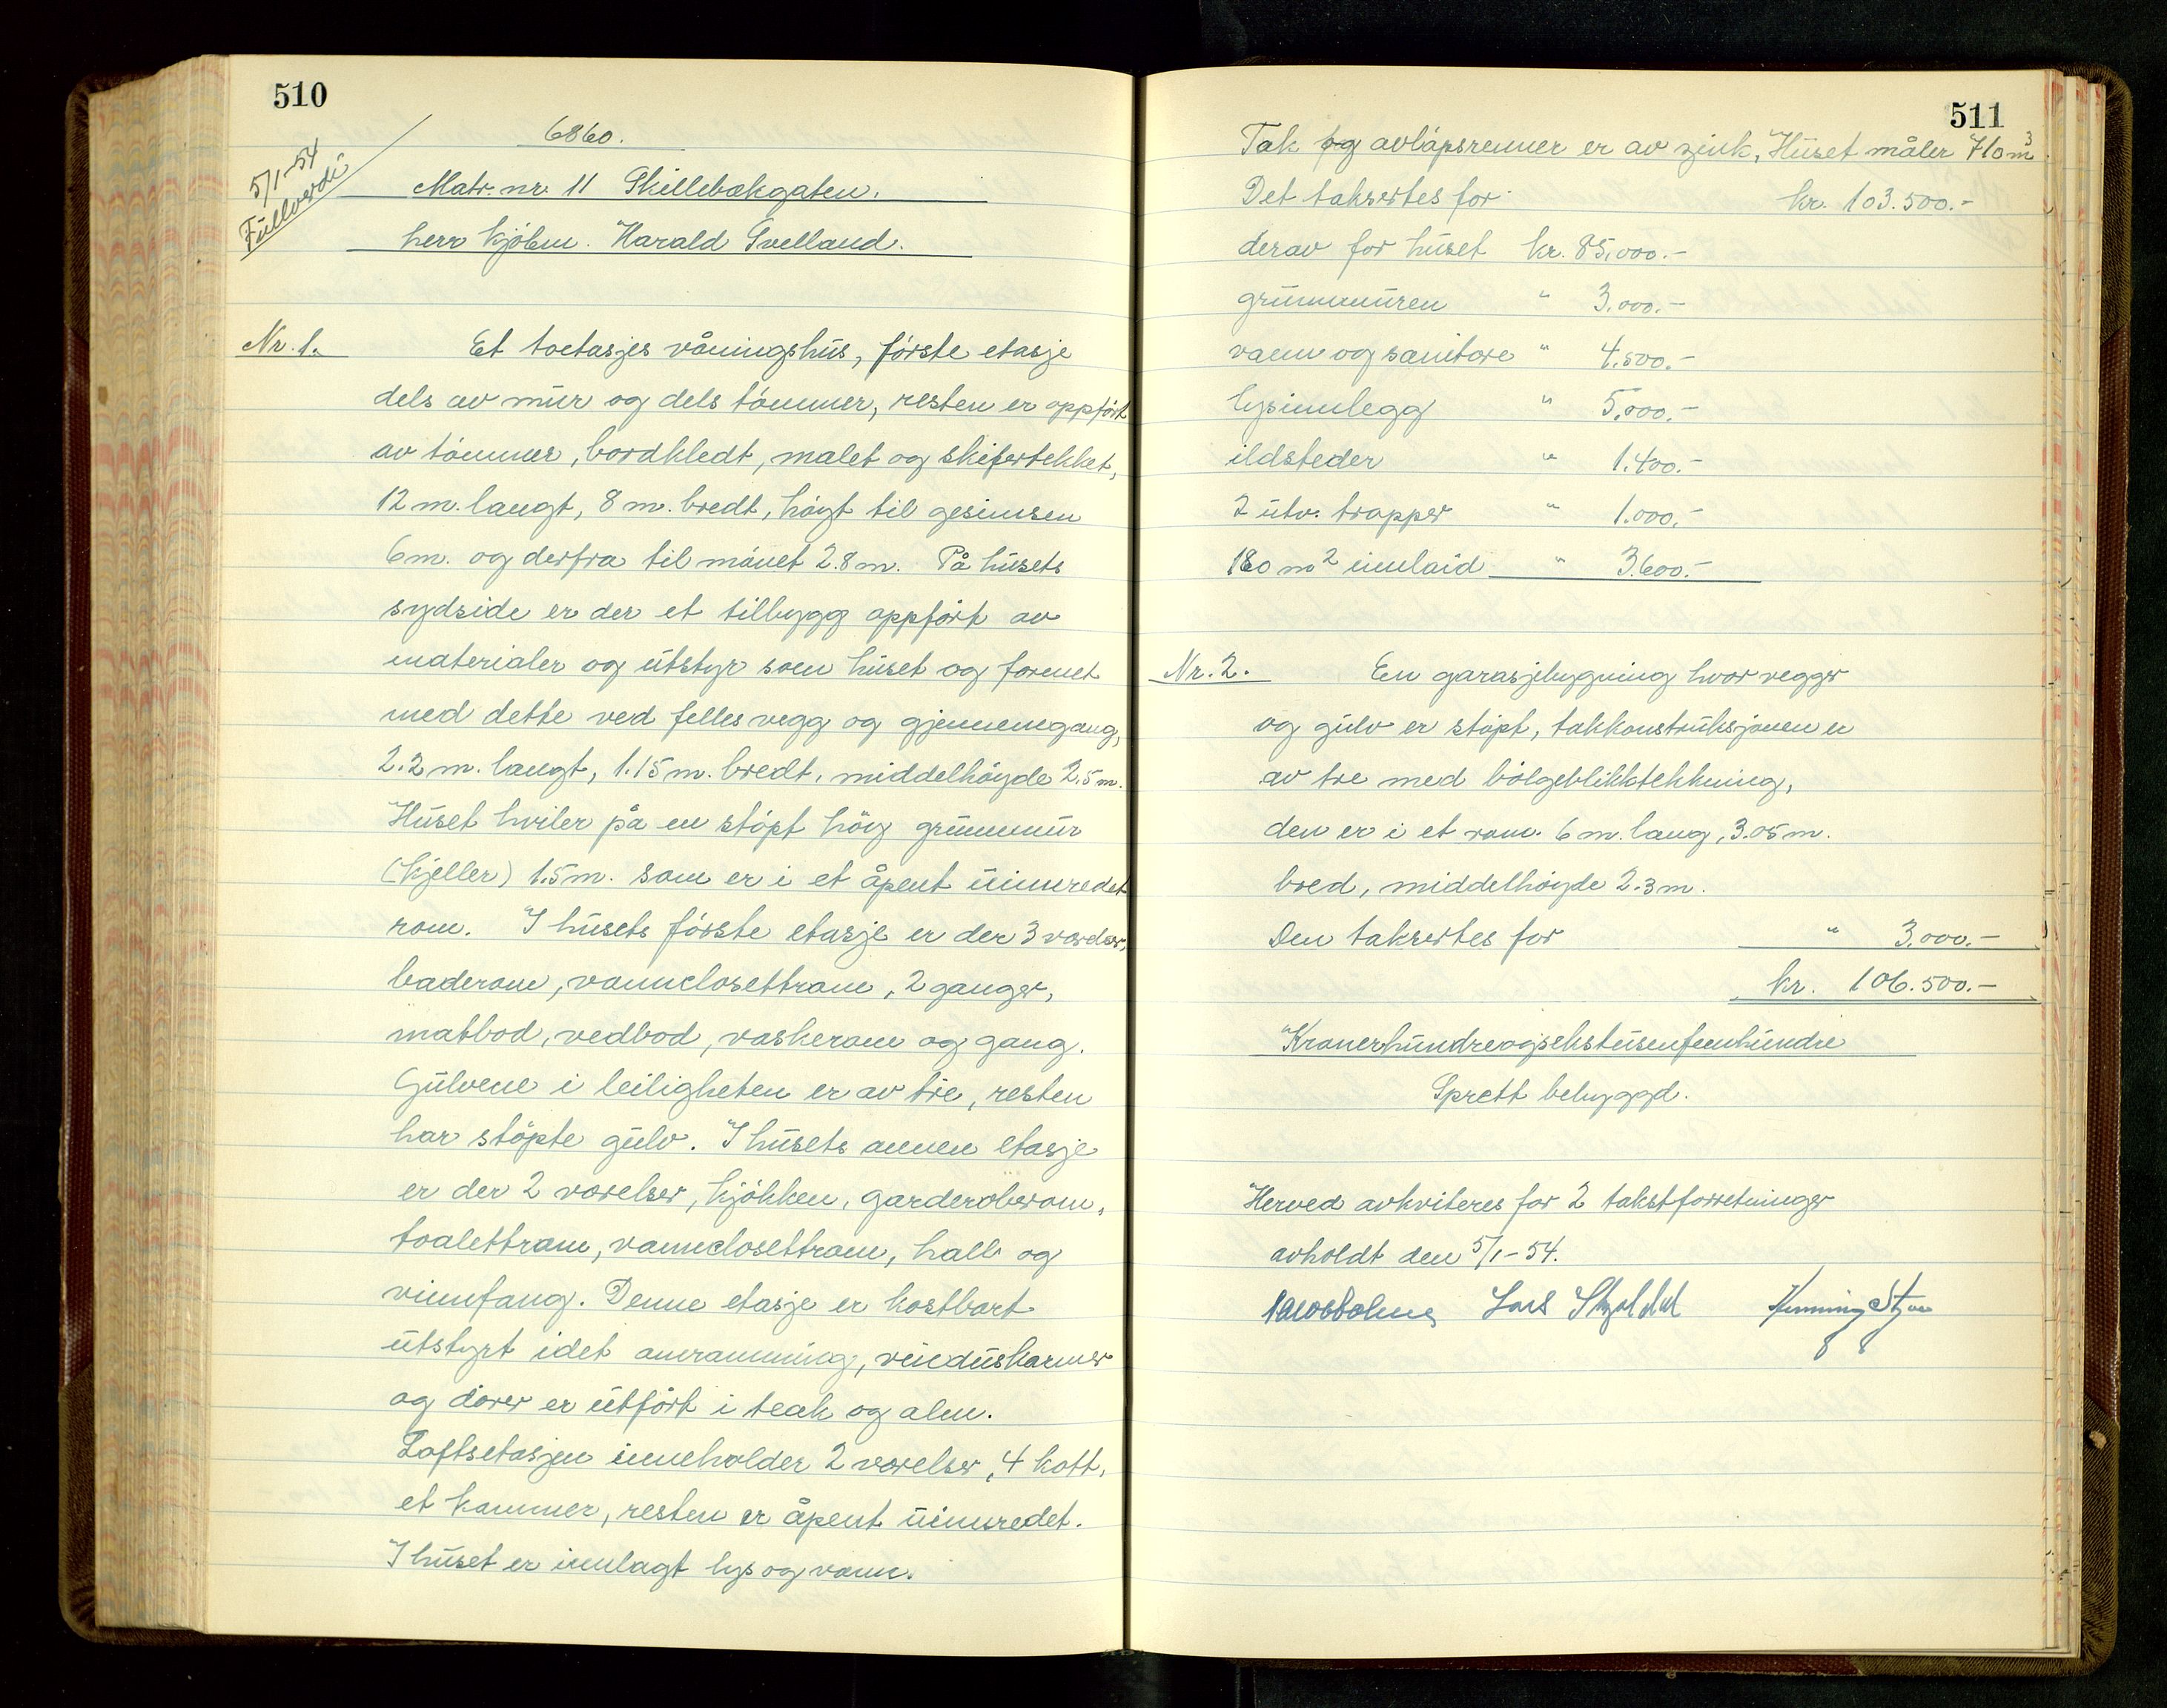 510
5/1-54
Fullverdi
6860.
Matr. nr. 11 Skillebækgaten.
herr kjöbm. Harald Tvelland.
Nr. 1. Et toetasjes våningshus, förste etasje
dels av mur og dels tömmer, resten er oppfört
av tömmer, bordkledt, malet og skifertekket,
12 m. langt, 8 m. bredt, höyt til gesimsen
6 m. og derfra til mönet 2.8 m. På husets
sydside er der et tilbygg oppfört av
materialer og utstyr som huset og forenet
med dette ved felles vegg og gjennemgang,
2.2 m. langt, 1.15 m. bredt, middelhöyde 2.5 m.
Huset hviler på en stöpt höy grunnmur
(kjeller) 1.5 m. som er i et åpent uinnredet
rom. I husets förste etasje er der 3 værelser,
baderom, vannclosettrom, 2 ganger,
matbod, vedbod, vaskerom og gang.
Gulvene i leiligheten er av tre, resten
har stöpte gulv. I husets annen etasje
er der 2 værelser, kjökken, garderoberom,
toalettrom, vannclosettrom, hall og
vinnfang. Denne etasje er kostbart
utstyrt idet omramming, vinduskarmer
og dörer er utfört i teak og alm.
Loftsetasjen inneholder 2 værelser, 4 kott,
et kammer, resten er åpent uinnredet.
I huset er innlagt lys og vann.
511
Tak og avlöpsrenner er av zink, Huset måler 710 m³
Det taksertes for kr. 103.500.-
derav for huset kr. 85.000.-
grunnmuren " 3.000.-
vann og sanitære " 4.500.-
lysinnlegg " 5.000.-
ildsteder " 1.400.-
2 utv. trapper " 1.000.-
180 m² innlaid " 3.600.-
Nr. 2. En garasjebygning hvor vegger
og gulv er stöpt, takkonstruksjonen er
av tre med bölgeblikktekkning,
den er i et rom. 6 m. lang, 3.05 m.
bred, middelhöyde 2.3 m.
Den taksertes for " 3.000.-
kr. 106.500.-
Kronerhundreogsekstusenfemhundre
Sprett bebyggd.
Herved avkviteres for 2 takstforretninger
avholdt den 5/1-54.
Lars Skjoldal Henning